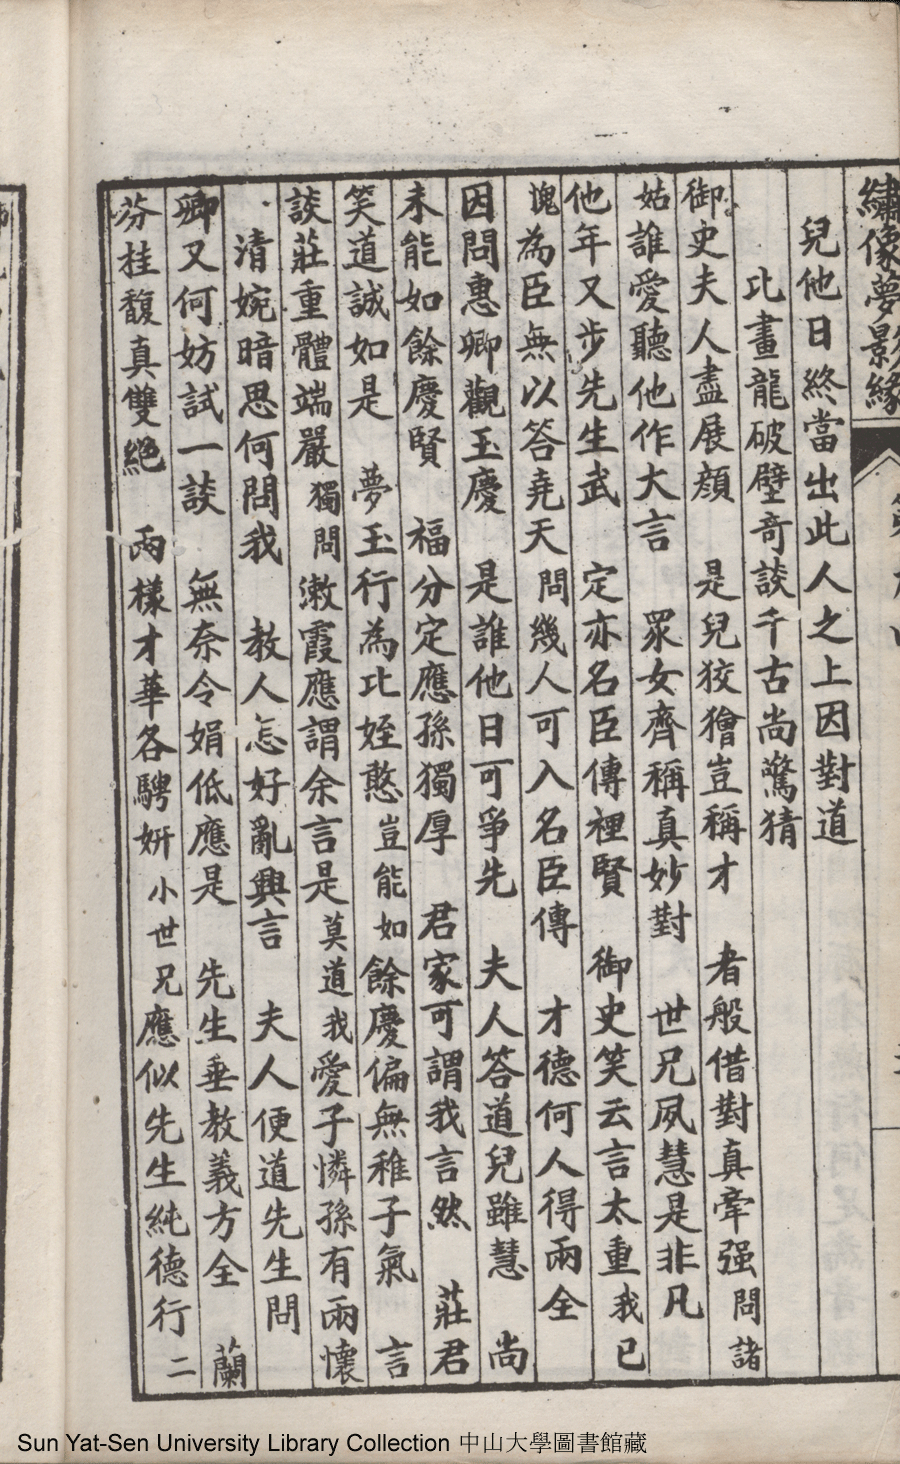 繡像夢影緣
兒他日終當出此人之上因對道
比畫龍破壁奇談千古尚驚猜
御史夫人盡展顏　是兒狡獪豈稱才　者般借對真牽强　問諸
姑誰愛聽他作大言　眾女齊稱真妙對　世兄夙慧是非凡
他年又步先生武　定亦名臣傳裡賢　御史笑云言太重　我已
愧為臣無以答堯天　問幾人可入名臣傳　才德何人得兩全
因問惠卿觀玉慶　是誰他日可爭先　夫人答道兒雖慧　尚
未能如餘慶賢　福分定應孫獨厚　君家可謂我言然　莊君
笑道誠如是　夢玉行為比姪憨　豈能如餘慶偏無稚子氣　言
談莊重體端嚴　獨問漱霞應謂余言是　莫道我愛子憐孫有兩懷
清婉暗思何問我　教人怎好亂興言　夫人便道先生問
卿又何妨試一談　無奈令娟低應是　先生垂教義方全　蘭
芬桂馥真雙絕　兩樣才華各騁妍　小世兄應似先生純德行　二
Sun Yat-Sen University Library Collection 中山大學圖書館藏